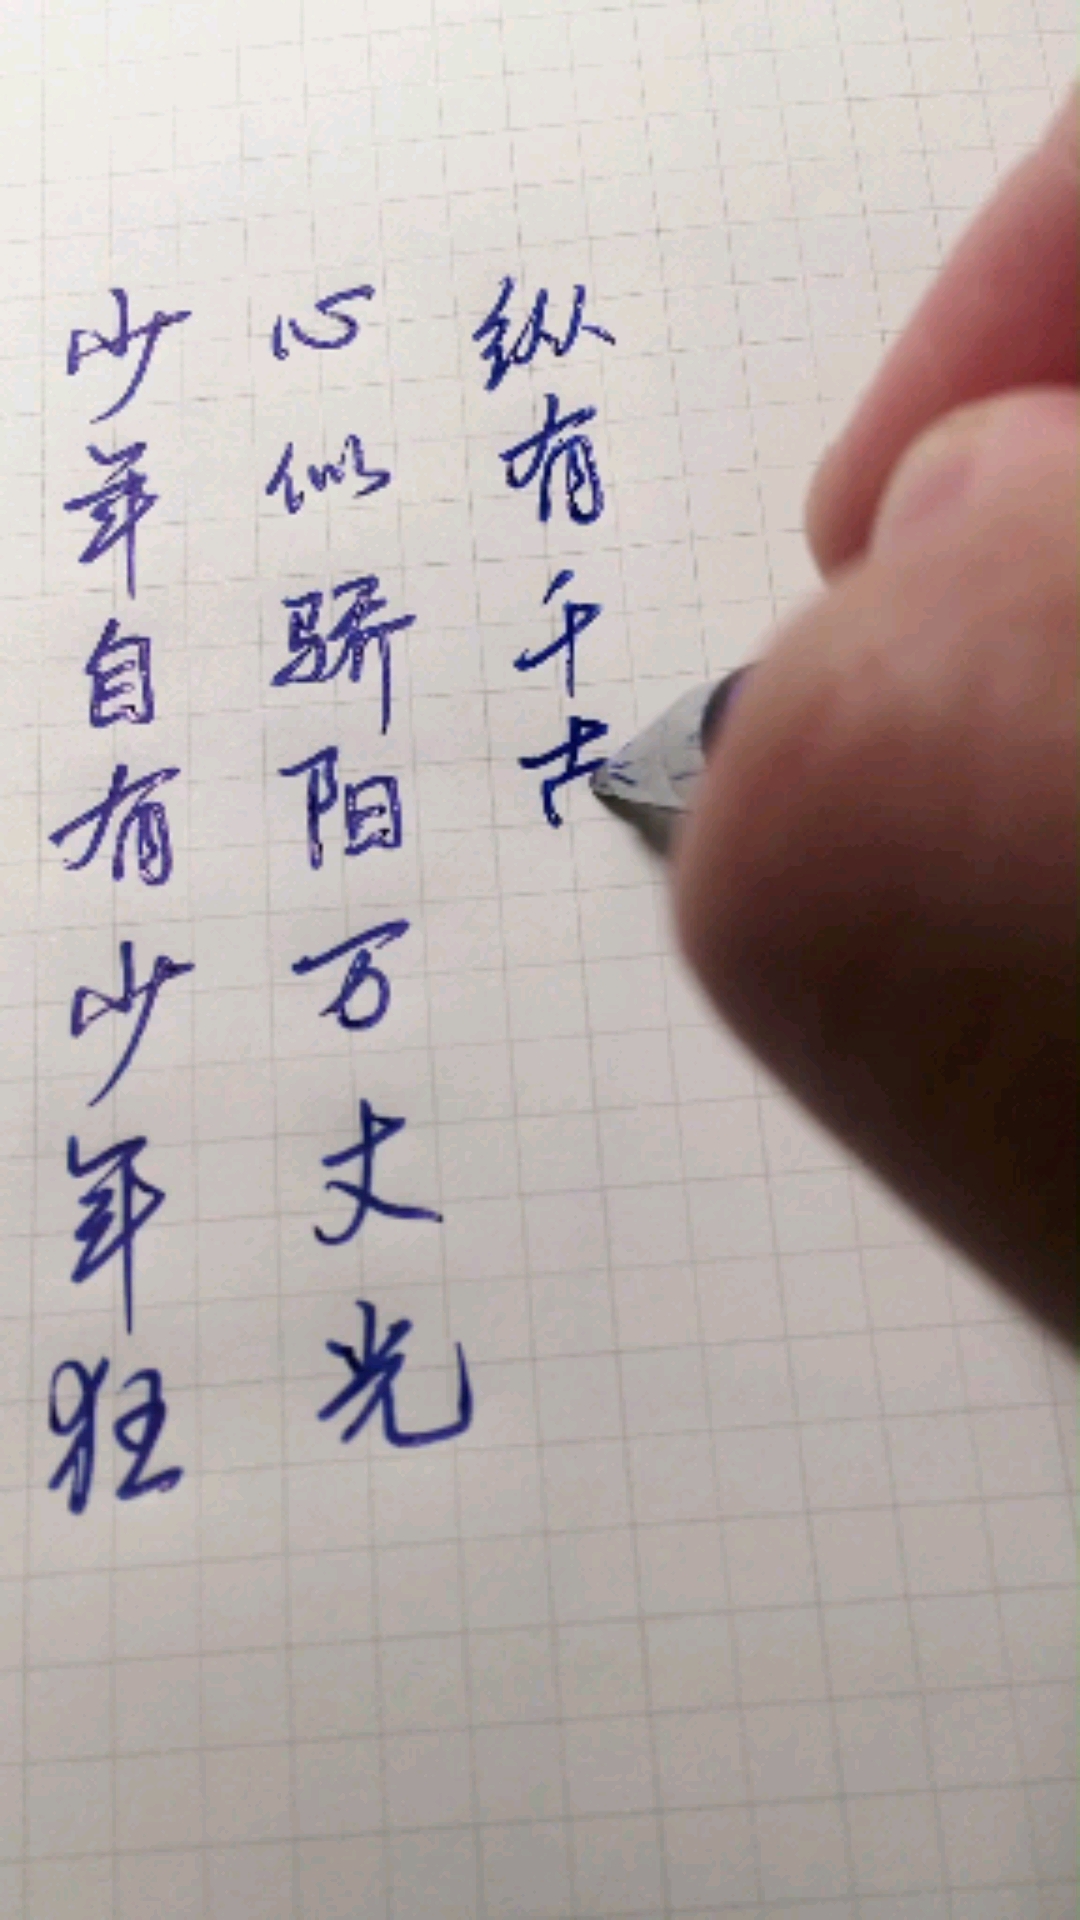 少年自有少年狂
心似骄阳万丈光
纵有千古